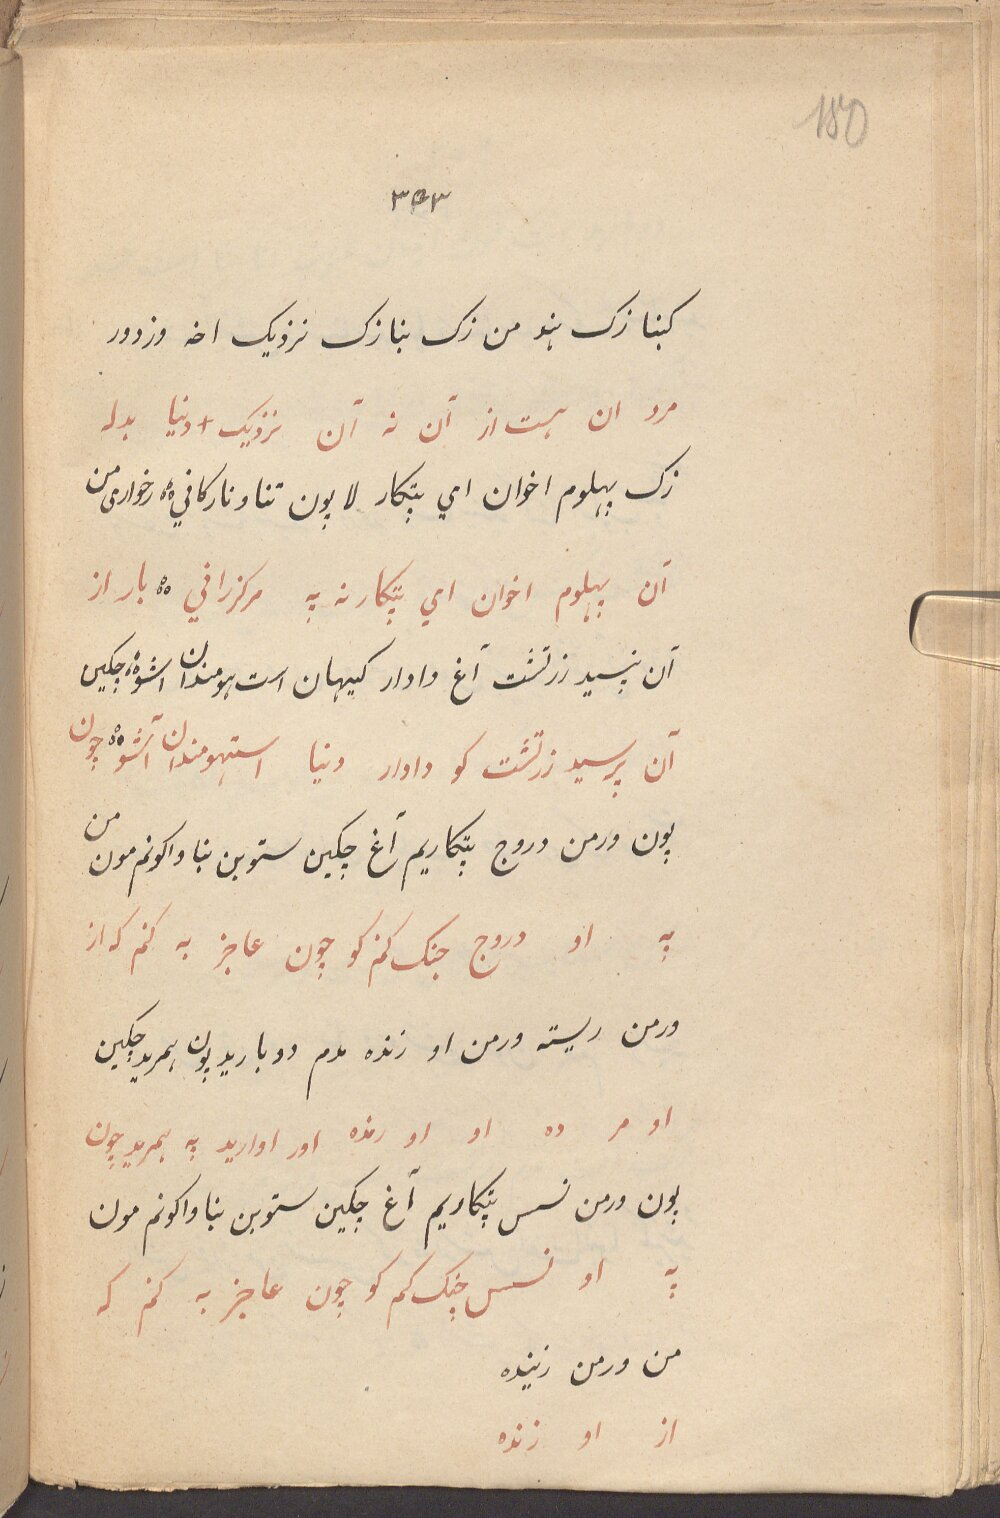 180
۳۵۳
کبنا زک هند من زک بنا زک نزدیک اخه وز دور
مرد ان هست از آن نه آن نزدیک + دنیا بدله
زک پهلوم اخوان اي پتکار لا پون تنا و نارکاني ۵۵ رخواری من
آن پهلوم اخوان اي پتکار نه په مرکزرافي ۵۵ بار از
آن پسید زرتشت آغ دادار کیهان است هومندان اشو ۵۵ چکین
آن پرسید زرتشت کو دادار دنیا استهومندان آشو ۵۵ چون
پون ورمن دروج پتکاریم آغ چکین ستوبن بنا واکونم مون من
په او دروج جنک کنم کو چون عاجز به کنم که از
ورمن ریسته ورمن او زنده مدم دوبارید پون همرید چکین
او مر ده او او رنده اور اوارید په همرید چون
پون ورمن نسس پتکاریم آغ چکین ستوبن بنا واکونم مون
په او نسس جنک کم کو چون عاجز به کنم که
من ورمن زینده
از او زنده